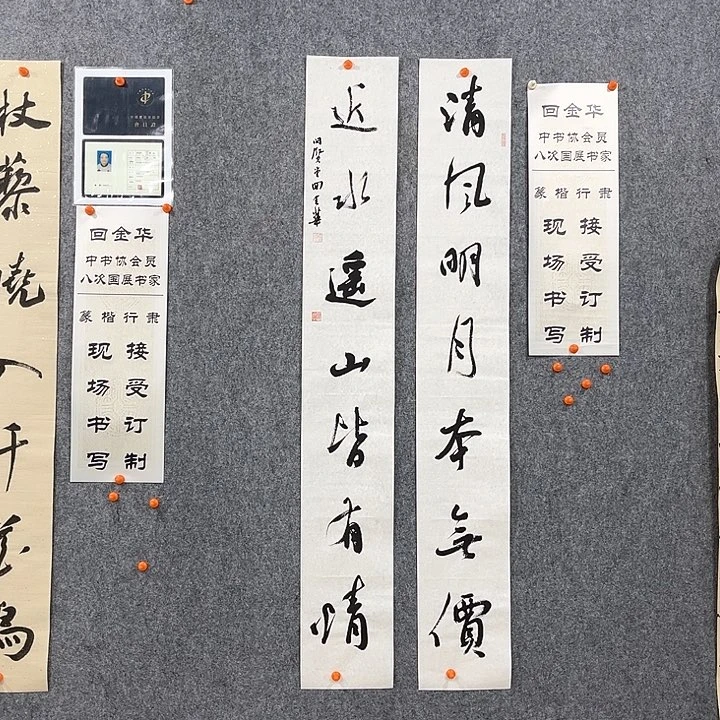 杖藜曉入千花塢
回金华
中书协会员
八次国展书家
篆楷行隶
现场书写
接受订制
清风明月本無價
近水遥山皆有情
回金華
回金华
中书协会员
八次国展书家
篆楷行隶
现场书写
接受订制